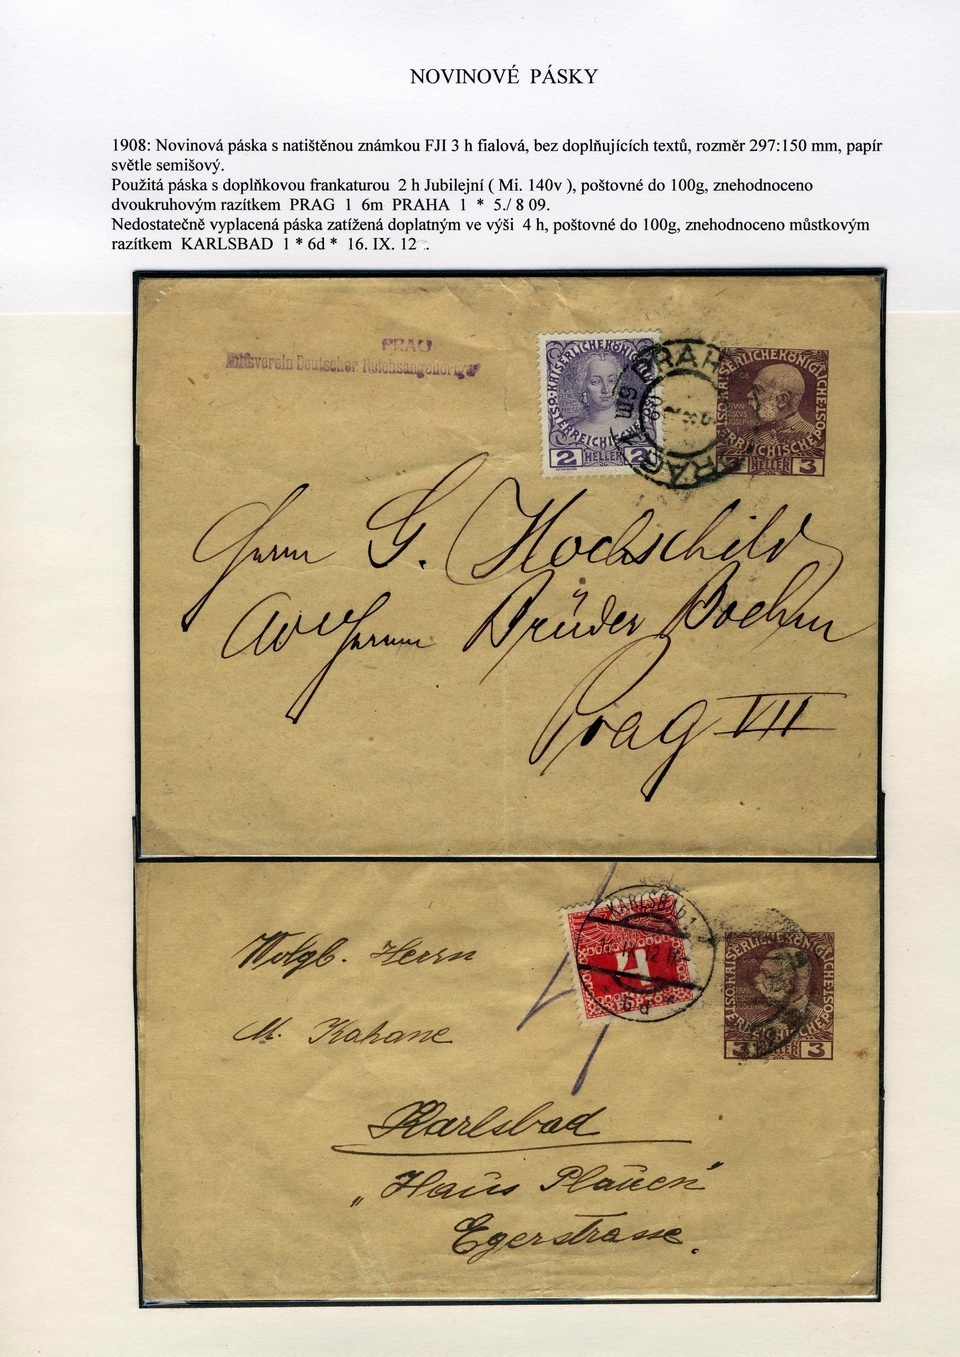 NOVINOVÉ PÁSKY
1908: Novinová páska s natištěnou známkou FJI 3 h fialová, bez doplňujících textů, rozměr 297:150 mm, papír
světle semišový.
Použitá páska s doplňkovou frankaturou 2 h Jubilejní ( Mi. 140v ), poštovné do 100g, znehodnoceno
dvoukruhovým razítkem PRAG 1 6m PRAHA 1 * 5./ 8 09.
Nedostatečně vyplacená páska zatížená doplatným ve výši 4 h, poštovné do 100g, znehodnoceno můstkovým
razítkem KARLSBAD 1 * 6d * 16. IX. 12 .
PRAG
Hilfsverein Deutscher Reichsangehöriger
2 HELLER 2
HELLER 3
PRAHA
6m
PRAG 1
Herrn G. Hochschild
Herrn Brüder Boehm
Prag VII
KARLSBAD 1
4
6d
3 HELLER 3
Wolgb. Herrn
M. Kahane
Karlsbad
„Haus Plauen"
Egerstrasse.